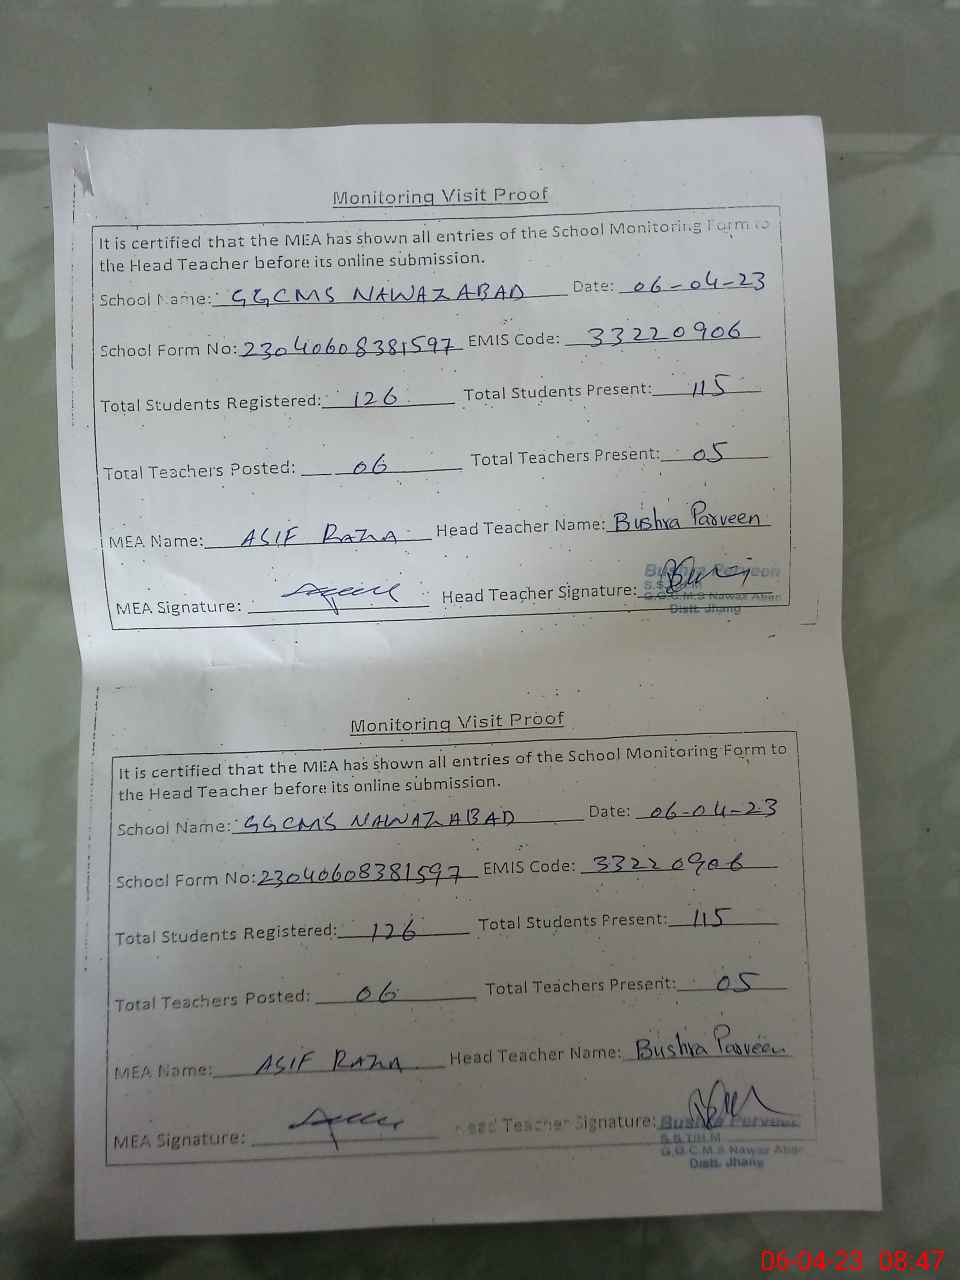 Monitoring Visit Proof
It is certified that the MEA has shown all entries of the School Monitoring Form to
the Head Teacher before its online submission.
School Name: GGCMS NAWAZABAD Date: 06-04-23
School Form No: 23040608381597 EMIS Code: 33220906
Total Students Registered: 126 Total Students Present: 115
Total Teachers Posted: 06 Total Teachers Present: 05
MEA Name: ASIF RAZA Head Teacher Name: Bushra Parveen
MEA Signature: Head Teacher Signature:
Bushra Perveen
G.G.C.M.S Nawaz Abad
Distt. Jhang
Monitoring Visit Proof
It is certified that the MEA has shown all entries of the School Monitoring Form to
the Head Teacher before its online submission.
School Name: GGCMS NAWAZABAD Date: 06-04-23
School Form No: 23040608381597 EMIS Code: 33220906
Total Students Registered: 126 Total Students Present: 115
Total Teachers Posted: 06 Total Teachers Present: 05
MEA Name: ASIF RAZA Head Teacher Name: Bushra Parveen
MEA Signature: Head Teacher Signature:
Bushra Perveen
G.G.C.M.S Nawaz Abad
Distt. Jhang
06-04-23 08:47